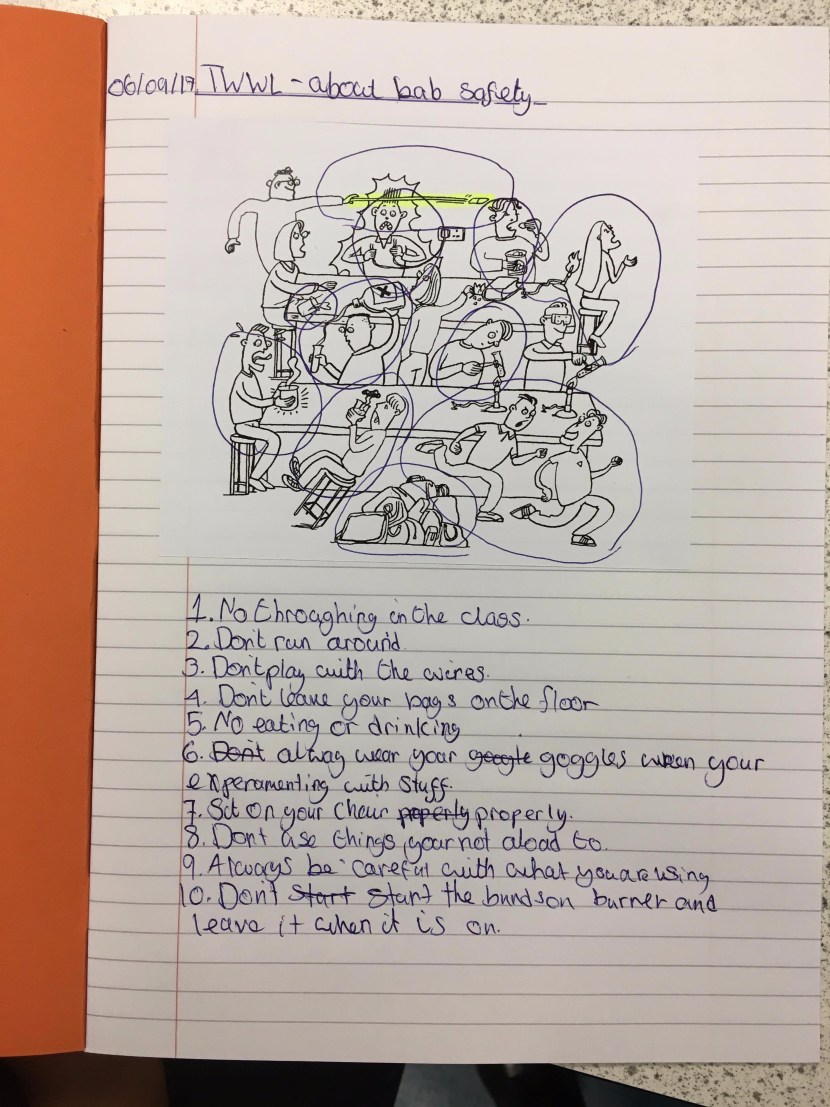 06/09/19 TWWL - about bab safety
X
1. No throaghing in the class.
2. Don't run around.
3. Don't play with the wires.
4. Don't leave your bags on the floor
5. No eating or drinking
6. Don't alway wear your google goggles when your
experamenting with stuff.
7. Sit on your chear properly properly.
8. Dont use things your not aload to.
9. Always be careful with what you are using
10. Don't start start the bundson burner and
leave it when it is on.